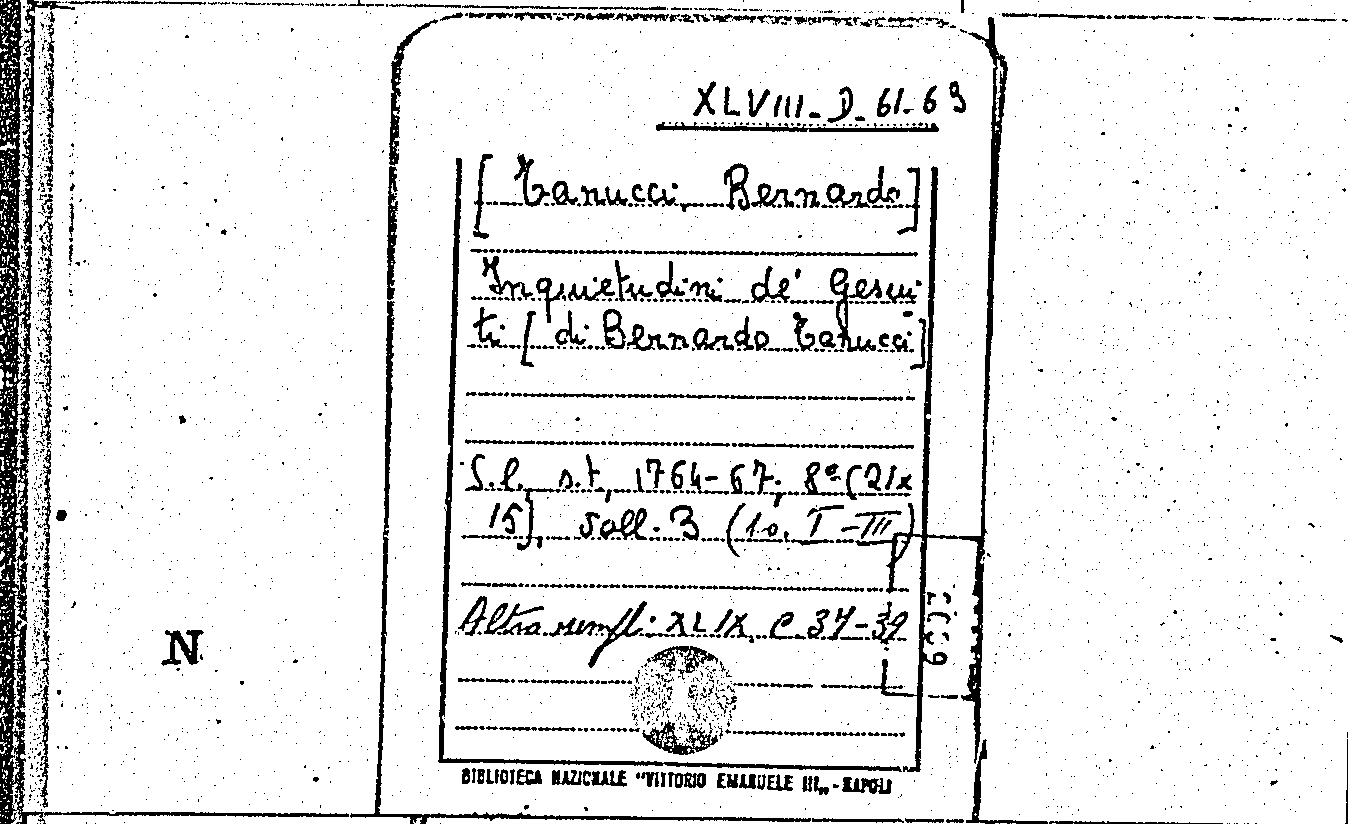 XLVIII. D. 61-63
[Tanucci, Bernardo]
Inquietudini de' Gesui-
ti [di Bernardo Tanucci]
S.l., s.t., 1764-67; 8º (21x
15), voll. 3 (to. I-III)
Altro sempl: XLIX. C. 37-39
N
BIBLIOTECA NAZIONALE "VITTORIO EMANUELE III„ - NAPOLI